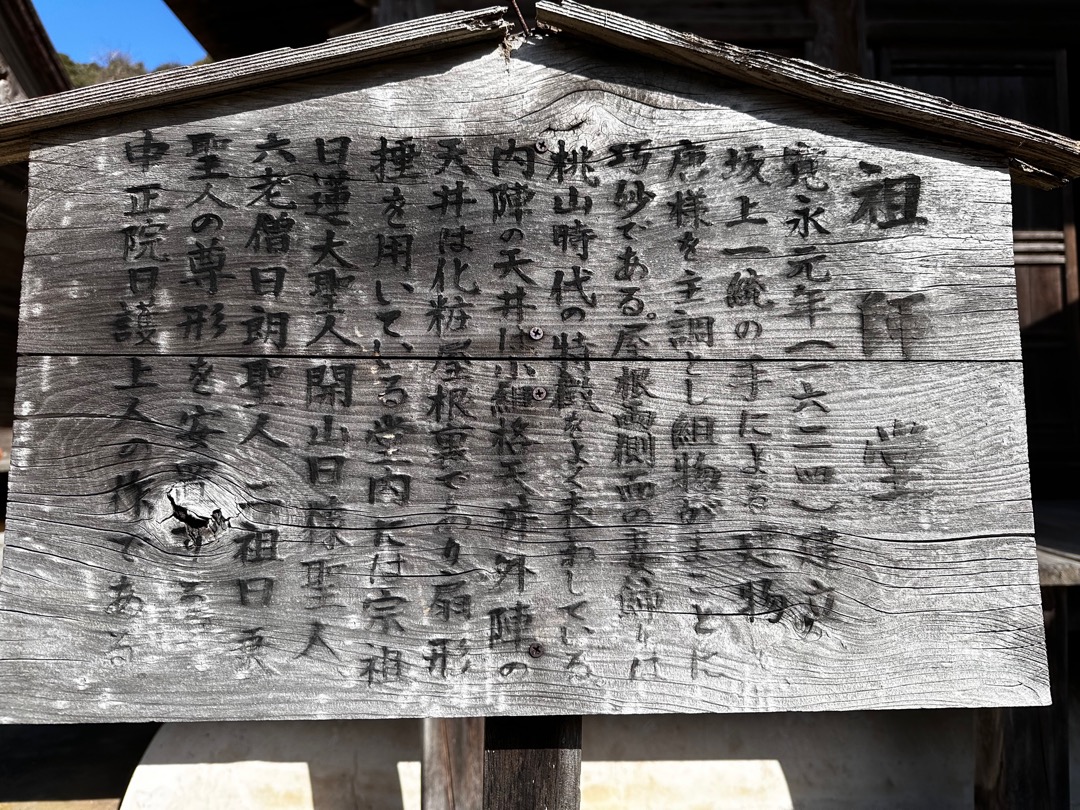 祖師堂
寛永元年(一六二四)建立
坂上一統の手による建物
唐様を主調とし組物がまことに
巧妙である。屋根両側面の妻飾りは
桃山時代の特徴をよく表わしている
内陣の天井は小組格天井外陣の
天井は化粧屋根裏であり扇形
捶を用いている堂内には宗祖
日蓮大聖人開山日様聖人
六老僧日朗聖人二祖日
聖人の尊形を安置す
中正院日護上人の作である